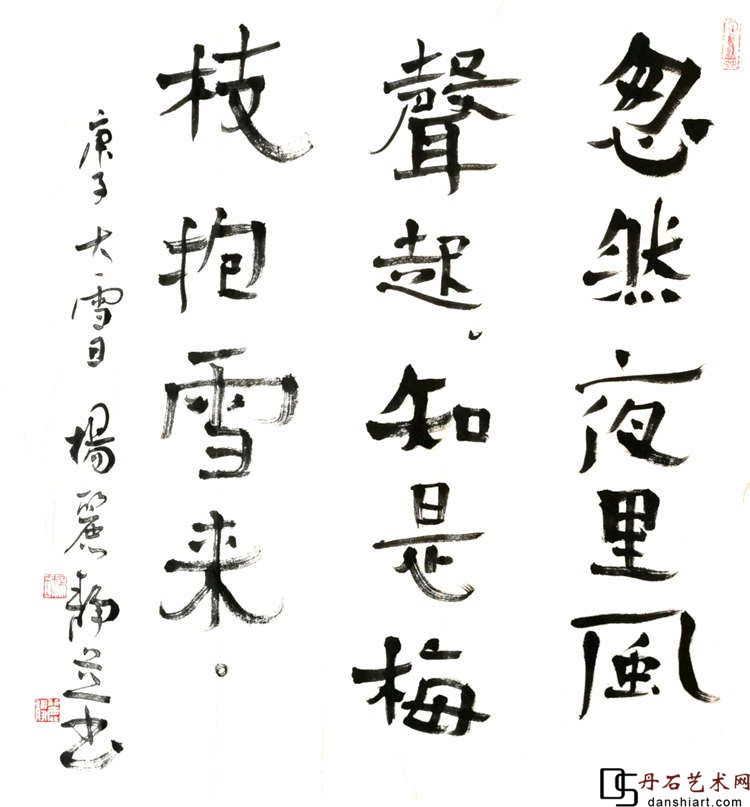 忽然夜里風
聲起。知是梅
枝抱雪来。
庚子大雪日楊麗静並书
丹石艺术网
danshiart.com